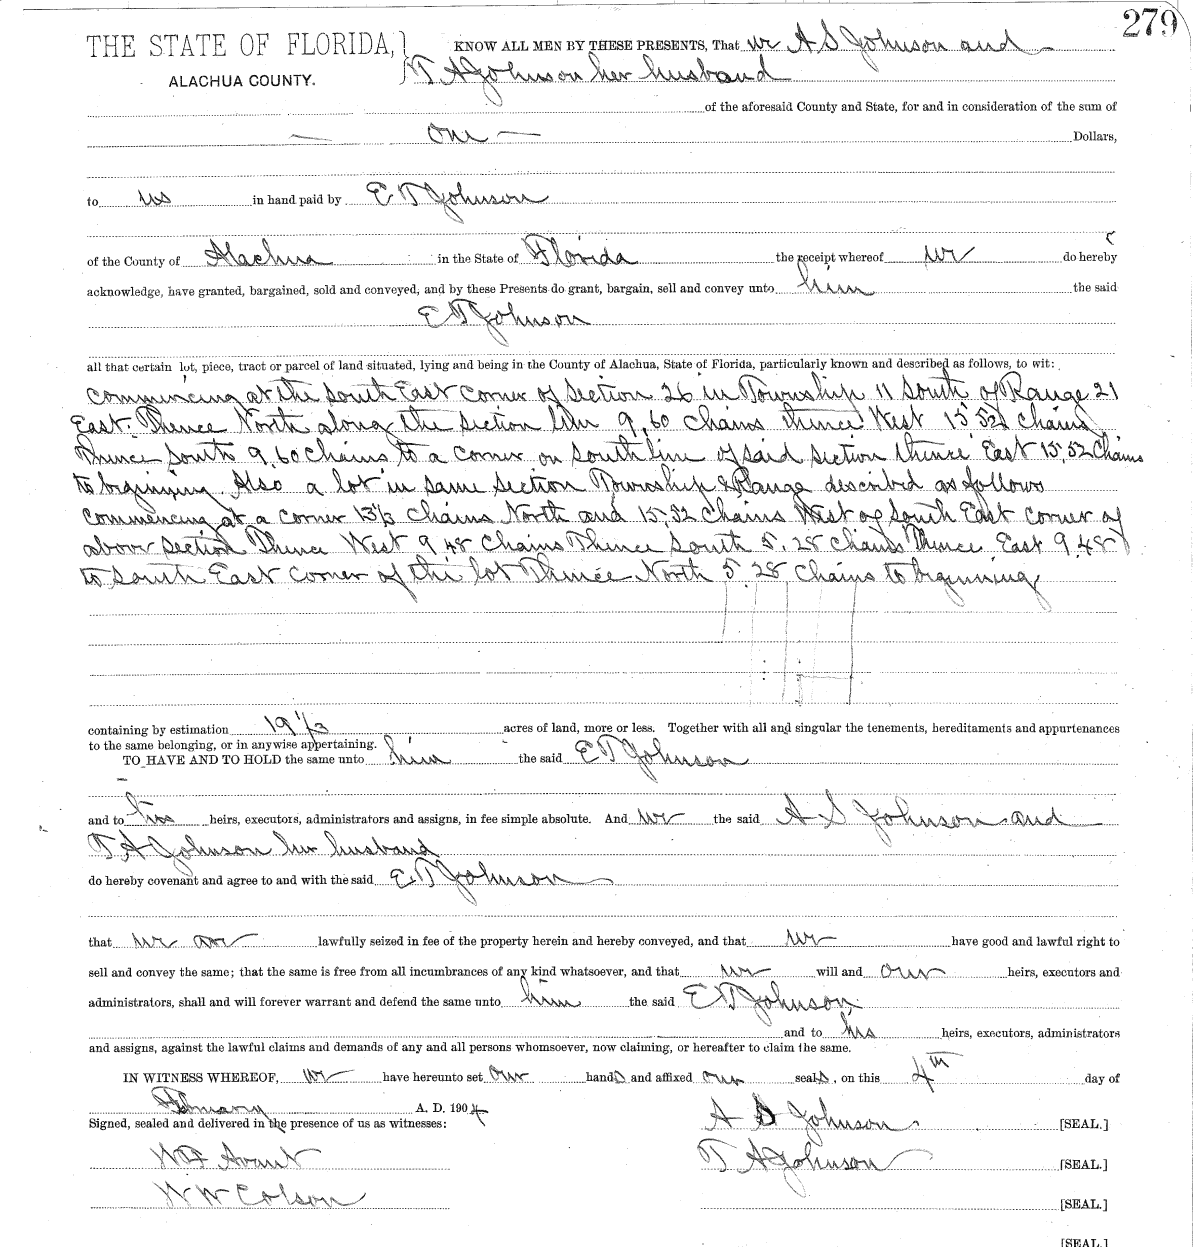 279
THE STATE OF FLORIDA,} KNOW ALL MEN BY THESE PRESENTS, That we A S Johnson and
ALACHUA COUNTY. T A Johnson her husband
of the aforesaid County and State, for and in consideration of the sum of
— One — Dollars,
to us in hand paid by E T Johnson
of the County of Alachua in the State of Florida the receipt whereof we do hereby
acknowledge, have granted, bargained, sold and conveyed, and by these Presents do grant, bargain, sell and convey unto him the said
E T Johnson
all that certain lot, piece, tract or parcel of land situated, lying and being in the County of Alachua, State of Florida, particularly known and described as follows, to wit:
Commencing at the South East Corner of Section 26 in Township 11 South of Range 21
East. Thence North along the section line 9.60 chains thence West 15.52 chains
Thence South 9.60 chains to a corner on South line of said section thence East 15.52 Chains
to beginning Also a lot in same section Township & Range described as follows
Commencing at a corner 13 1/3 chains North and 15.52 chains West of South East corner of
above section Thence West 9.48 Chains Thence South 5.28 chains Thence East 9.48
to South East corner of the lot Thence North 5.28 chains to beginning
containing by estimation 19 1/3 acres of land, more or less. Together with all and singular the tenements, hereditaments and appurtenances
to the same belonging, or in anywise appertaining.
TO HAVE AND TO HOLD the same unto him the said E T Johnson
and to his heirs, executors, administrators and assigns, in fee simple absolute. And we the said A S Johnson and
T A Johnson her husband
do hereby covenant and agree to and with the said E T Johnson
that we are lawfully seized in fee of the property herein and hereby conveyed, and that we have good and lawful right to
sell and convey the same; that the same is free from all incumbrances of any kind whatsoever, and that we will and our heirs, executors and
administrators, shall and will forever warrant and defend the same unto him the said E T Johnson,
and to his heirs, executors, administrators
and assigns, against the lawful claims and demands of any and all persons whomsoever, now claiming, or hereafter to claim the same.
IN WITNESS WHEREOF, we have hereunto set our hands and affixed our seals, on this 4th day of
February A. D. 1904
Signed, sealed and delivered in the presence of us as witnesses: A S Johnson [SEAL.]
W F Avant T A Johnson [SEAL.]
W W Colson [SEAL.]
[SEAL.]